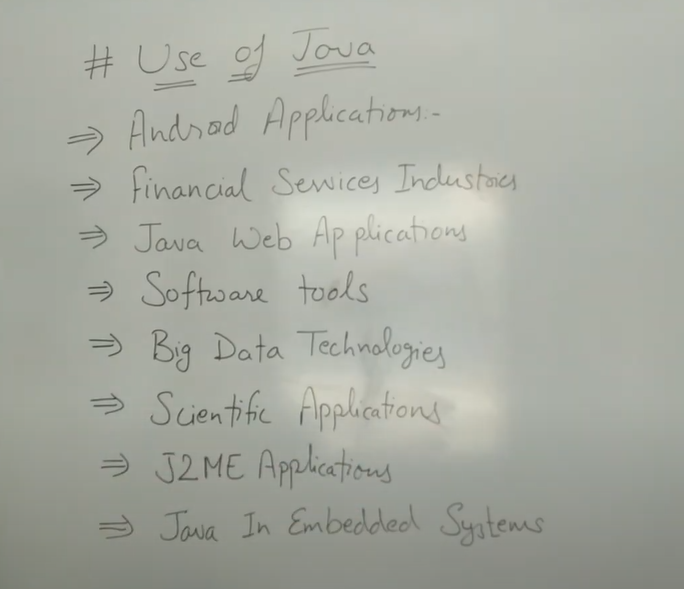 # Use of Java
⇒ Android Applications:-
⇒ Financial Services Industries
⇒ Java Web Applications
⇒ Software tools
⇒ Big Data Technologies
⇒ Scientific Applications
⇒ J2ME Applications
⇒ Java In Embedded Systems